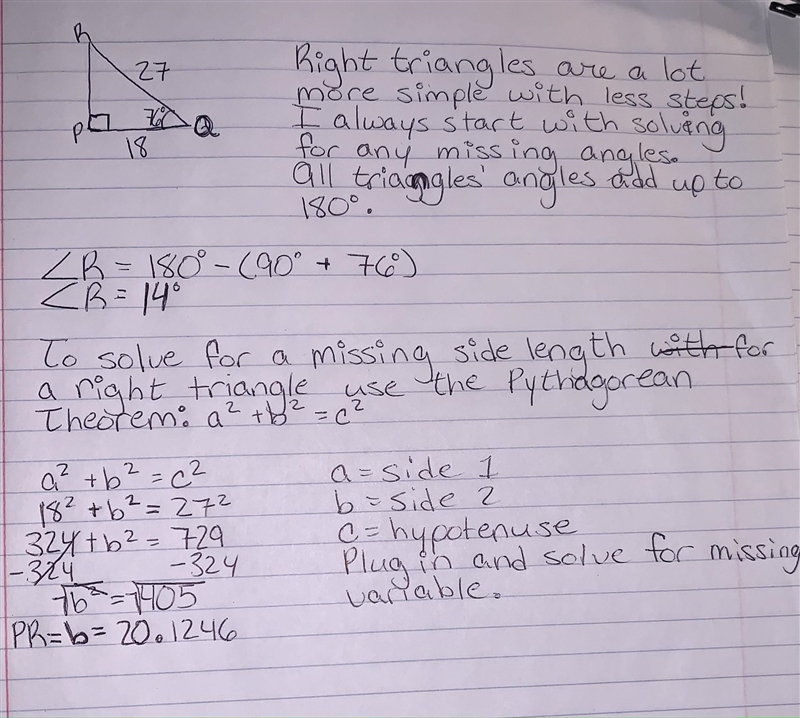 R
27
76°
P
Q
18
Right triangles are a lot
more simple with less steps!
I always start with solving
for any missing angles.
All triangles' angles add up to
180°.
∠R = 180° - (90° + 76°)
∠R = 14°
To solve for a missing side length with for
a right triangle use the Pythagorean
Theorem: a² + b² = c²
a² + b² = c²
18² + b² = 27²
324 + b² = 729
-324 -324
√b² = √405
PR = b = 20.1246
a = side 1
b = side 2
c = hypotenuse
Plug in and solve for missing
variable.